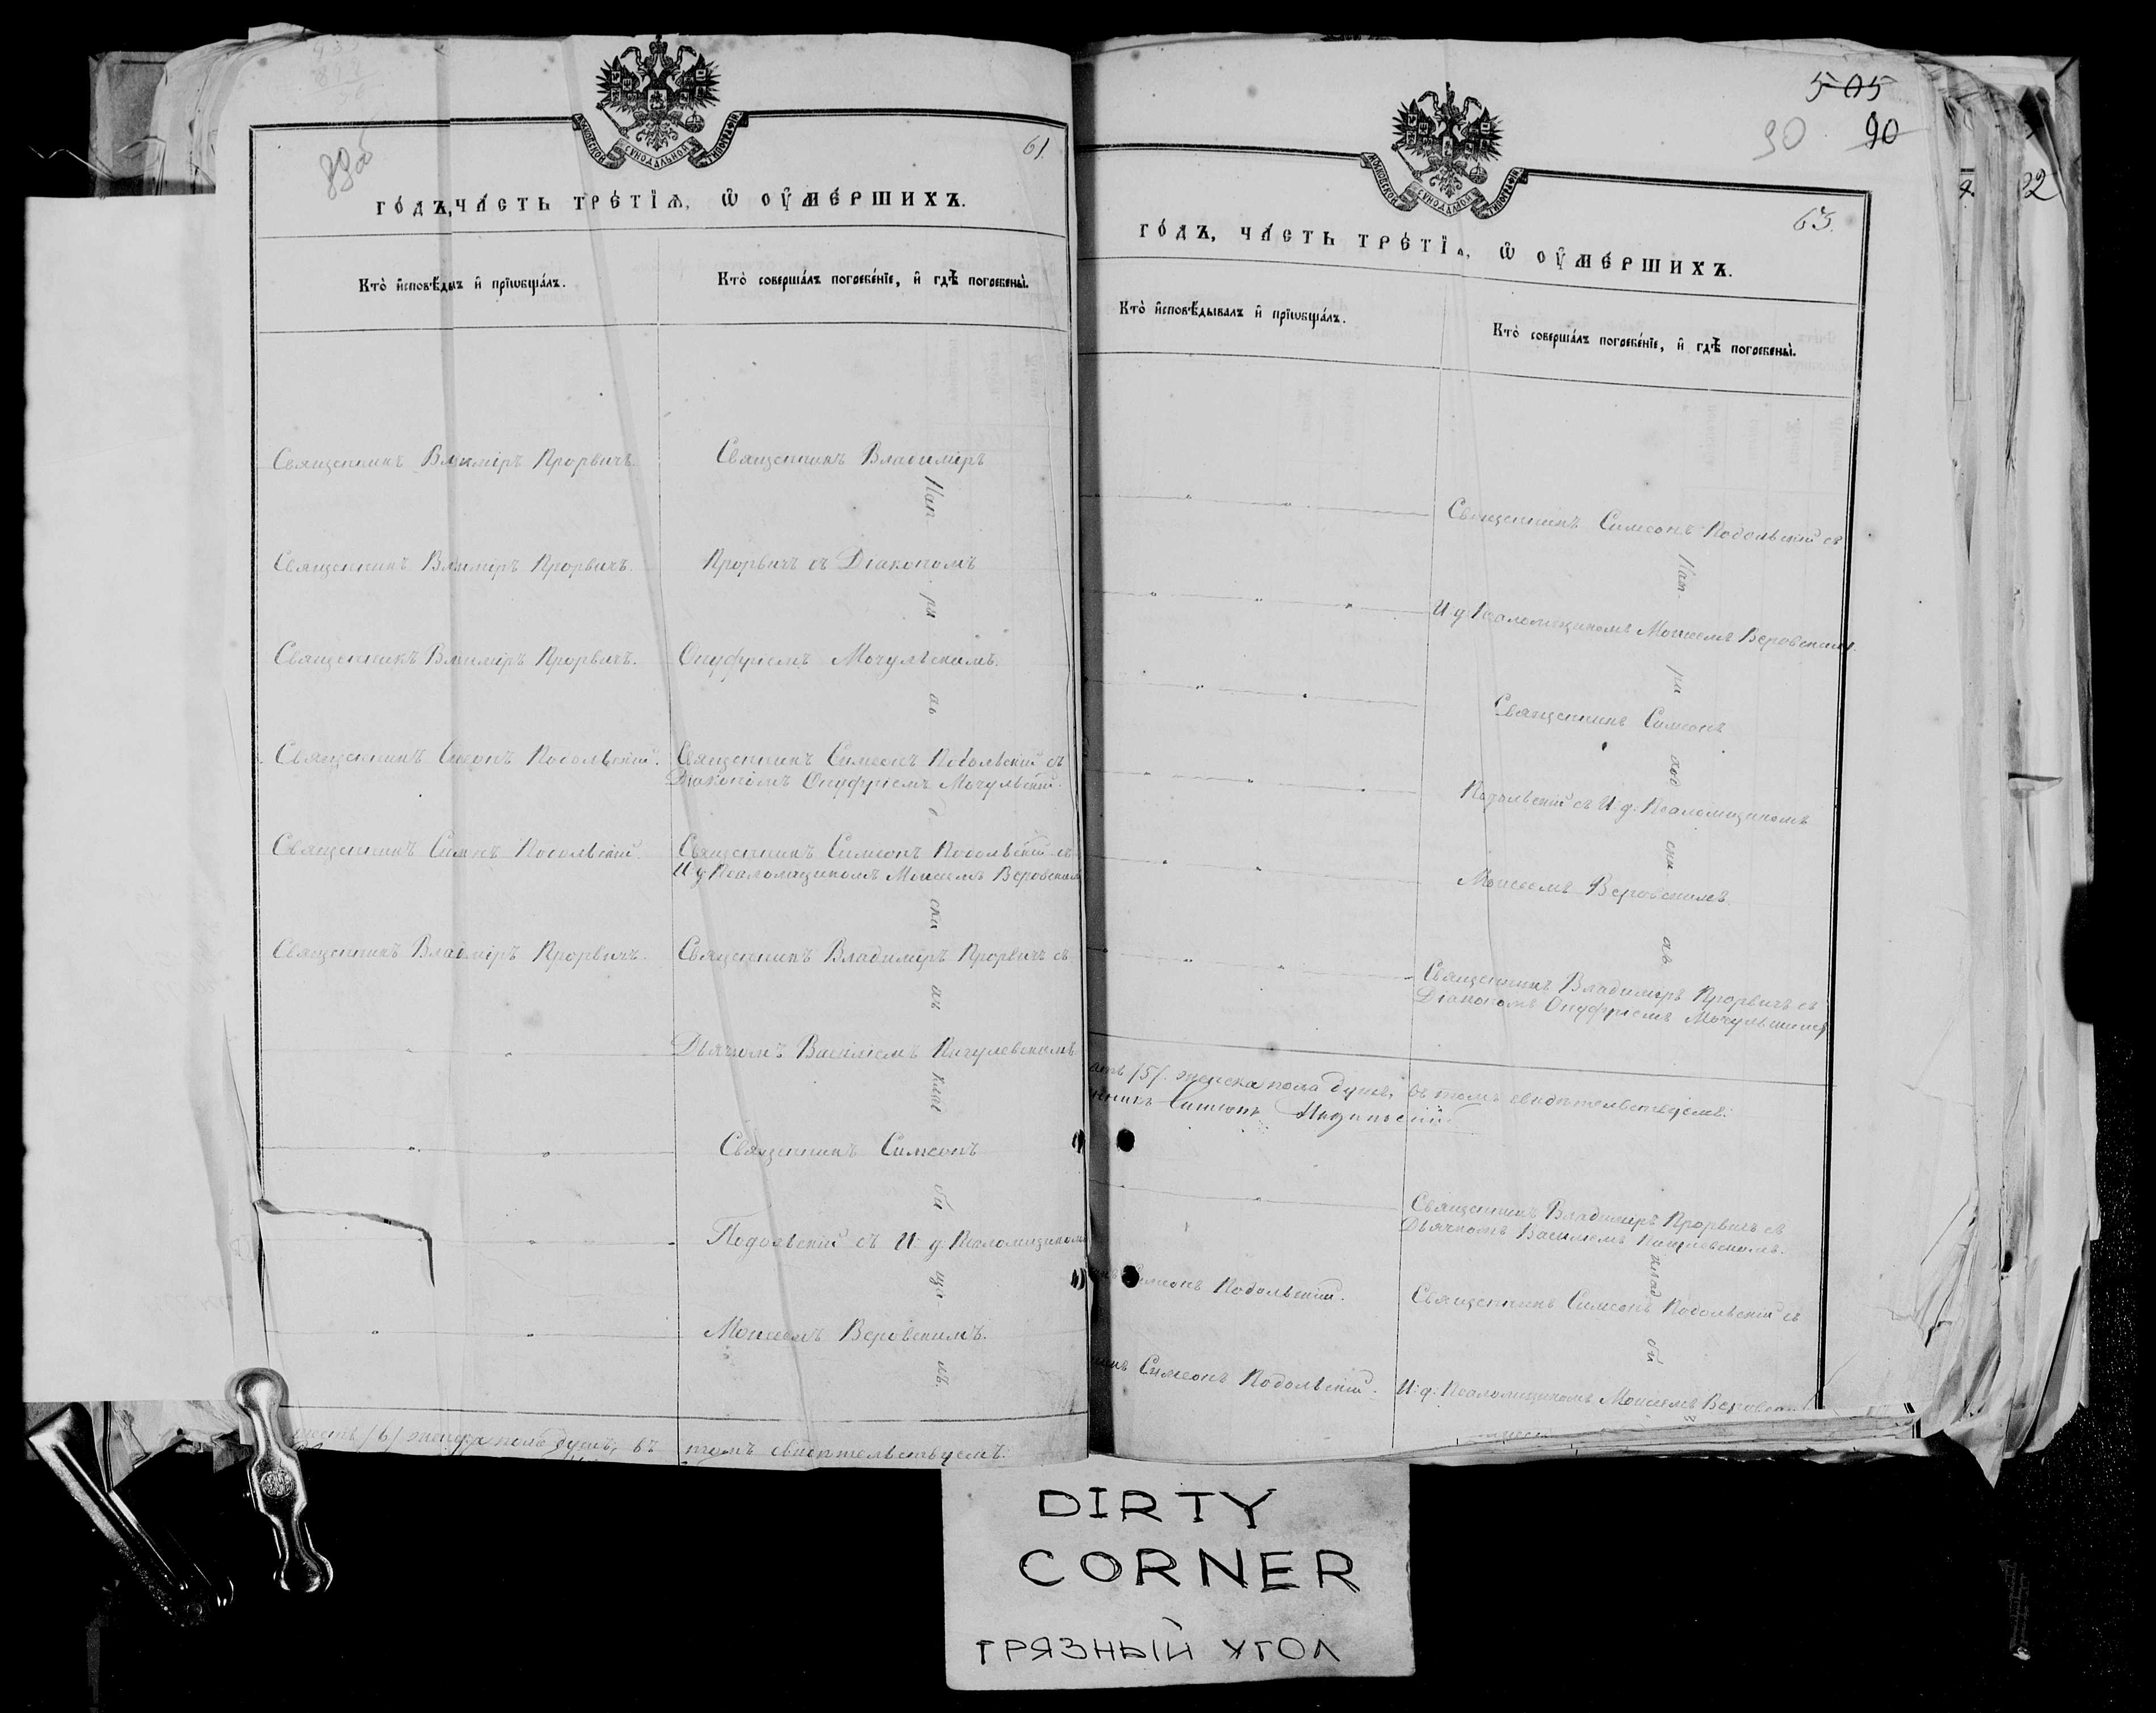 89об
61.
МОСКОВСКОЙ СИНОДАЛЬНОЙ ТИПОГРАФІИ
ГО́ДЪ, ЧА́СТЬ ТРЕ́ТЇѦ, Ѡ҆ ОУ҆МЕ́РШИХЪ.
Кто̀ и҆сповѣ́дыв и҆ прїѡбща́лъ.
Кто̀ соверша́лъ погребе́нїе, и҆ гдѣ̀ погребены̀.
Священникъ Владиміръ Прорвичъ.
Священникъ Владиміръ
Священникъ Владиміръ Прорвичъ.
Прорвичъ съ Діакономъ
Священникъ Владиміръ Прорвичъ.
Онуфріемъ Мочульскимъ.
Священникъ Симеонъ Подольскій.
Священникъ Симеонъ Подольскій съ
Діакономъ Онуфріемъ Мочульскій.
Священникъ Симеонъ Подольскій.
Священникъ Симеонъ Подольскій съ
И д Псаломщикомъ Моисеемъ Веровским
Священникъ Владиміръ Прорвичъ.
Священникъ Владиміръ Прорвичъ съ
Дьячкомъ Василіемъ
Священникъ Симеонъ
Подольскій съ И. д. Псаломщиком
Моисеемъ Веровскимъ.
На при хо д ски хъ клад би ща хъ.
шесть /6/ женска пола душъ, въ томъ свидѣтельствуемъ:
505
90 90
63.
МОСКОВСКОЙ СИНОДАЛЬНОЙ ТИПОГРАФІИ
ГО́ДЪ, ЧА́СТЬ ТРЕ́ТЇѦ, Ѡ҆ ОУ҆МЕ́РШИХЪ.
Кто̀ и҆сповѣ́дывалъ и҆ прїѡбща́лъ.
Кто̀ соверша́лъ погребе́нїе, и҆ гдѣ̀ погребены̀.
Священникъ Симеонъ Подольскій съ
И д Псаломщикомъ Моисеемъ Веровскимъ.
Священникъ Симеонъ
Подольскій съ И. д. Псаломщикомъ
Моисеемъ Веровскимъ.
Священникъ Владиміръ Прорвичъ съ
Діакономъ Онуфріемъ Мочульскимъ
/5/. женска пола душъ, въ томъ свидѣтельствуемъ:
Симеонъ Подольскій
Священникъ Владиміръ Прорвичъ съ
Дьячкомъ Василіемъ
Симеонъ Подольскій.
Священникъ Симеонъ Подольскій съ
Симеонъ Подольскій.
И: д: Псаломщикомъ Моисеемъ Веровск
клад би
DIRTY
CORNER
ГРЯЗНЫЙ УГОЛ